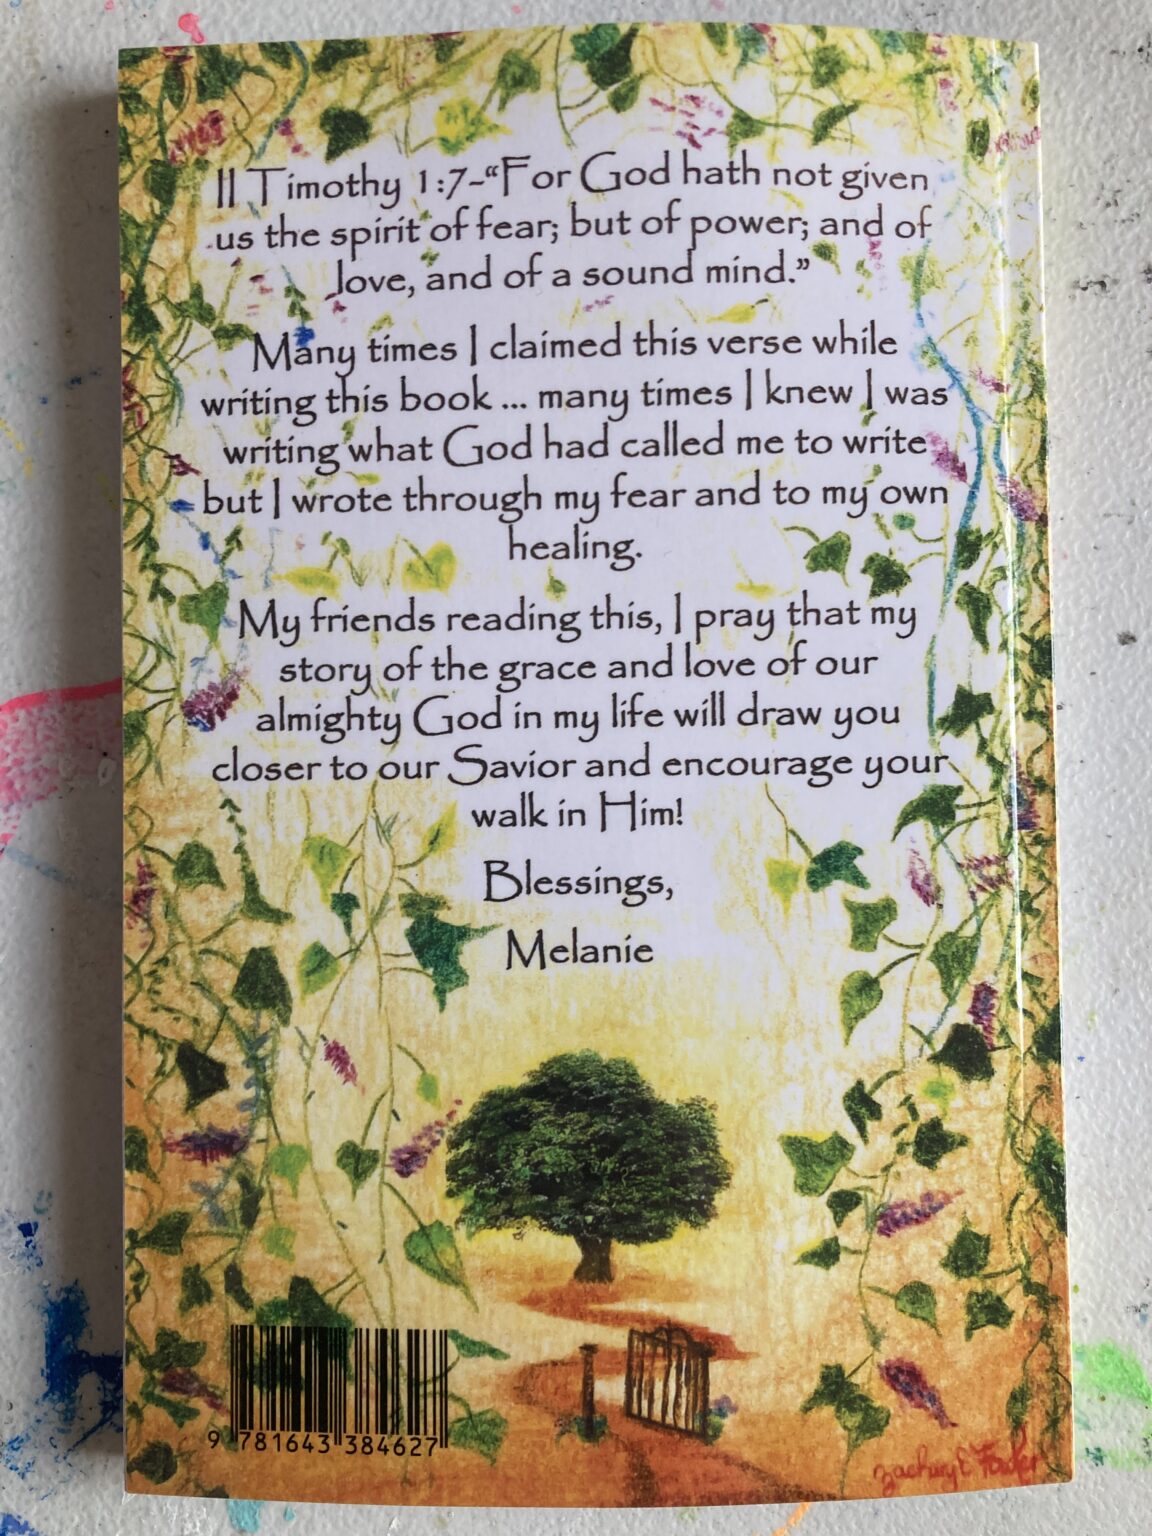 II Timothy 1:7-“For God hath not given
us the spirit of fear; but of power; and of
love, and of a sound mind.”
Many times I claimed this verse while
writing this book ... many times I knew I was
writing what God had called me to write
but I wrote through my fear and to my own
healing.
My friends reading this, I pray that my
story of the grace and love of our
almighty God in my life will draw you
closer to our Savior and encourage your
walk in Him!
Blessings,
Melanie
9 781643 384627